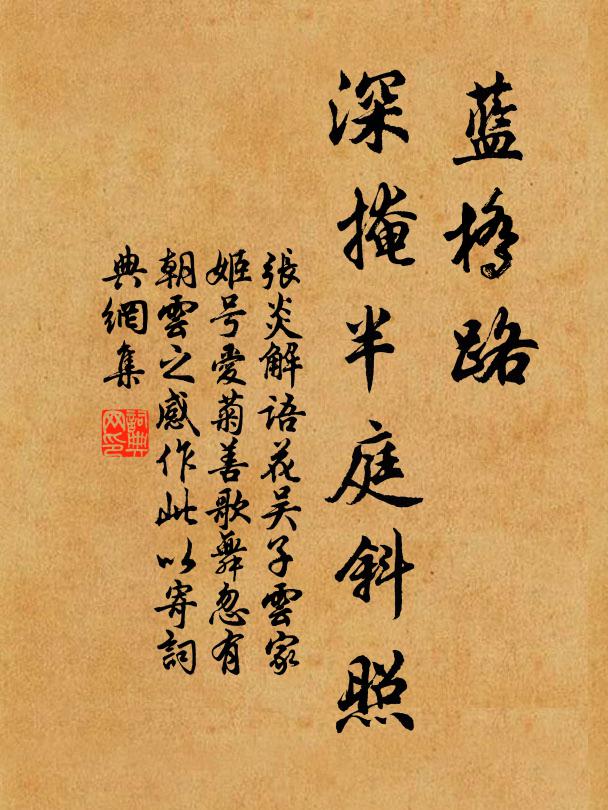 蓝橋路
深掩半庭斜照
張炎解語花吴子雲家
姬号愛菊善歌舞忽有
朝雲之感作此以寄詞
典網集
詞典
网印